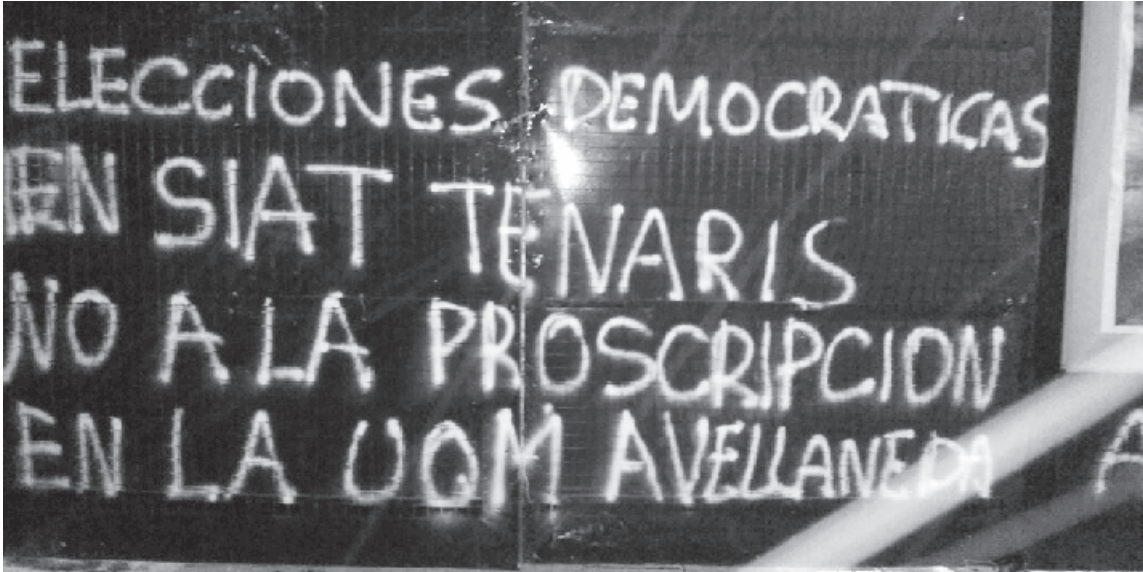 ELECCIONES DEMOCRATICAS
EN SIAT TENARIS
NO A LA PROSCRIPCION
EN LA UOM AVELLANEDA